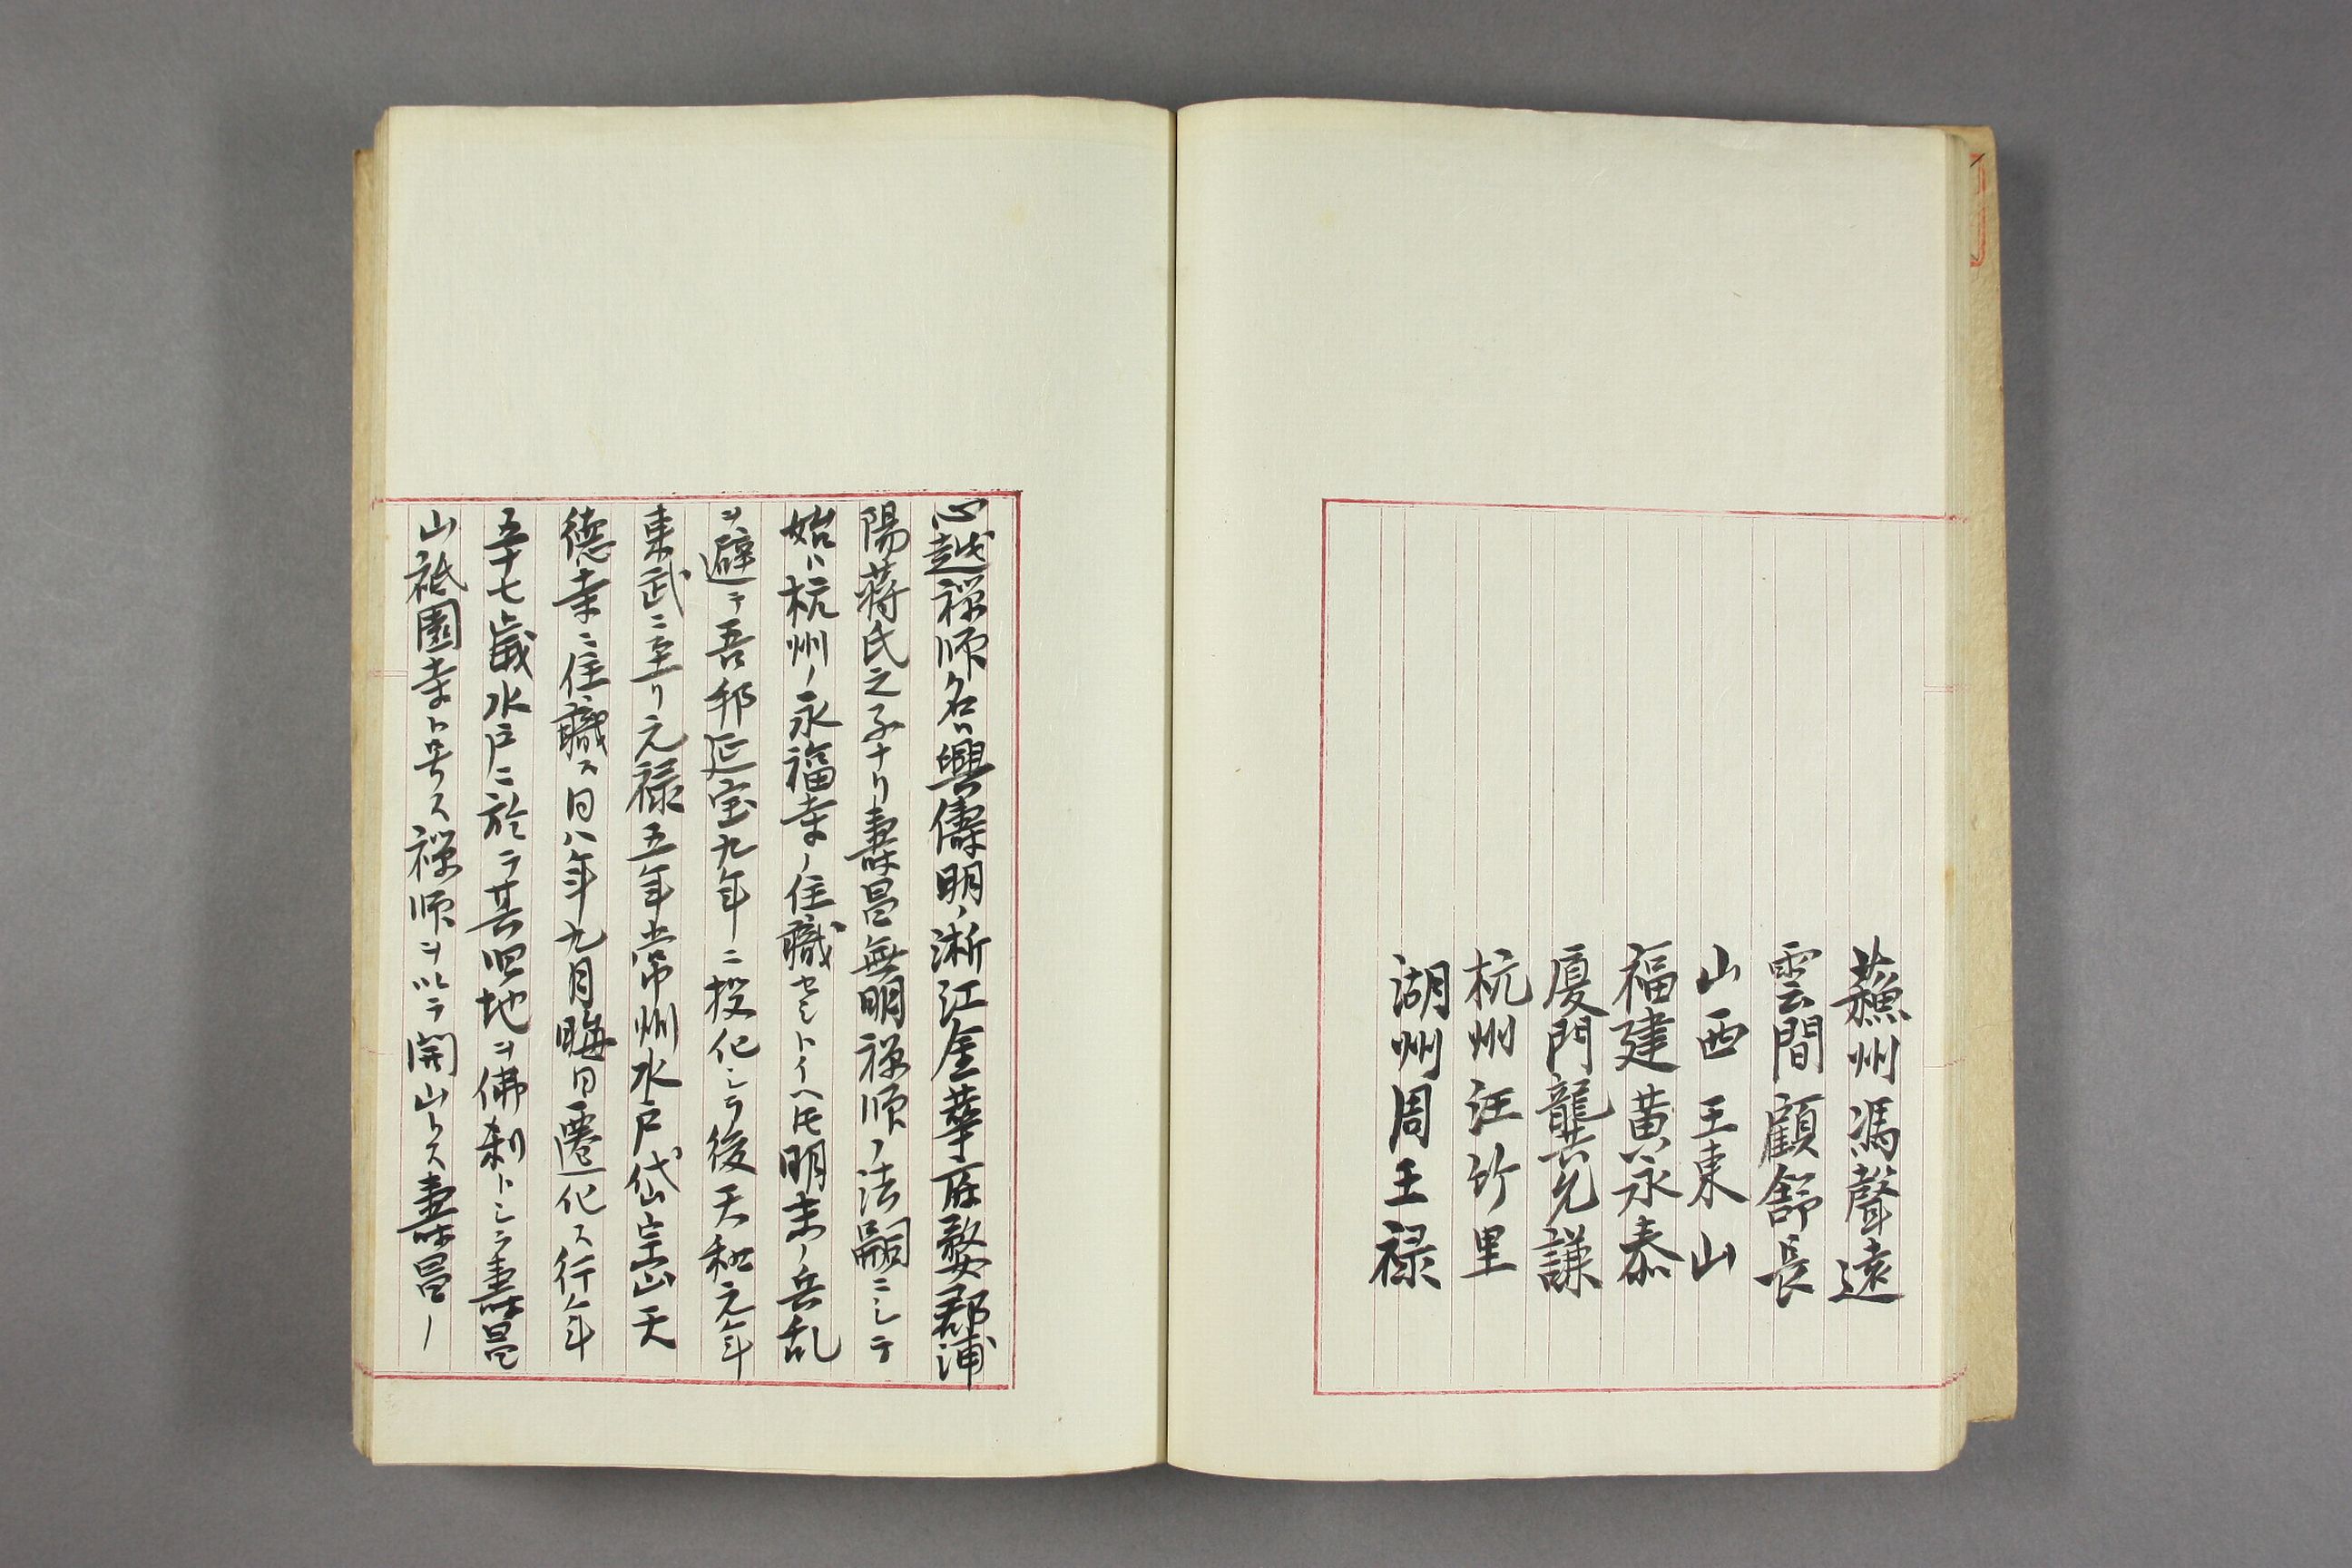 蘓州馮聲遠
雲間顧舒長
山西王東山
福建黄永泰
厦門龔允謙
杭州汪竹里
湖州周王禄
心越禅师名ハ興儔明ノ淅江金華府婺郡浦
陽蒋氏之子ナリ壽昌無明禅师ノ法嗣ニシテ
始ハ杭州ノ永福寺ノ住職セシトイヘ圧明末ノ兵乱
ヲ避テ吾邦延宝九年ニ投化シテ後天和元年
東武ニ至リ元禄五年常州水戸岱宗山天
徳寺ニ住職ス同八年九月晦日遷化ス行年
五十七歳水戸ニ於テ其旧地ヲ佛刹トシテ壽昌
山祗園寺ト号ス禅师ヲ以テ開山トス壽昌ノ